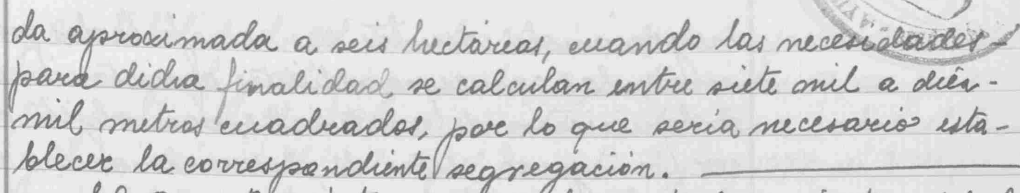 da aproximada a seis hectáreas, cuando las necesidades -
para dicha finalidad se calculan entre siete mil a diéz -
mil metros cuadrados, por lo que sería necesario esta-
blecer la correspondiente segregación.